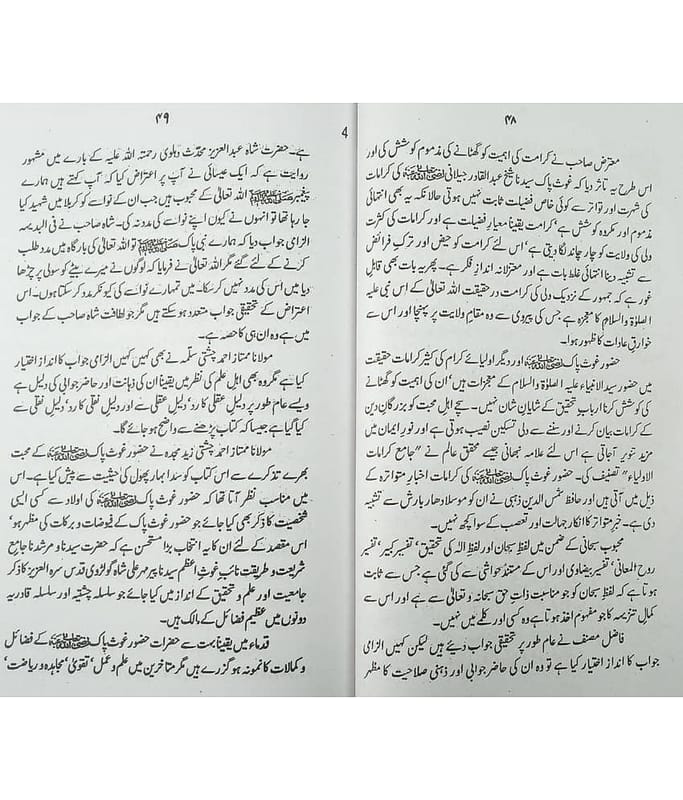 ۴۸
معترض صاحب نے کرامت کی اہمیت کو گھٹانے کی مذموم کوشش کی اور
اس طرح یہ تأثر دیا کہ غوث پاک سیدنا شیخ عبدالقادر جیلانی رضی اللہ عنہ کی کرامات
کی شہرت اور تواتر سے کوئی خاص فضیلت ثابت نہیں ہوتی حالانکہ یہ بھی انتہائی
مذموم اور مکروہ کوشش ہے‘ کرامت یقیناً معیار فضیلت ہے اور کرامات کی کثرت
ولی کی ولایت کو چار چاند لگا دیتی ہے‘ اس لئے کرامت کو حیض اور ترکِ فرائض
سے تشبیہ دینا انتہائی غلط بات ہے اور معتزلانہ انداز فکر ہے۔ پھر یہ بات بھی قابل
غور ہے کہ جمہور کے نزدیک ولی کی کرامت در حقیقت اللہ تعالیٰ کے اس نبی علیہ
الصلوٰۃ والسلام کا معجزہ ہے جس کی پیروی سے وہ مقامِ ولایت پر پہنچا اور اس سے
خوارقِ عادات کا ظہور ہوا۔
حضور غوث پاک رضی اللہ عنہ اور دیگر اولیائے کرام کی کثیر کرامات حقیقت
میں حضور سید الانبیاء علیہ الصلوٰۃ والسلام کے معجزات ہیں‘ ان کی اہمیت کو گھٹانے
کی کوشش کرنا اربابِ تحقیق کے شایانِ شان نہیں۔ سچے اہلِ محبت کو بزرگانِ دین
کے کرامات بیان کرنے اور سننے سے دلی تسکین نصیب ہوتی ہے اور نورِ ایمان میں
مزید تنویر آجاتی ہے اس لئے علامہ نبھانی جیسے محقق عالم نے "جامع کرامات
الاولیاء" تصنیف کی۔ حضور غوث پاک رضی اللہ عنہ کی کرامات اخبارِ متواترہ کے
ذیل میں آتی ہیں اور حافظ شمس الدین ذہبی نے ان کو موسلادھار بارش سے تشبیہ
دی ہے۔ خبرِ متواتر کا انکار جہالت اور تعصب کے سوا کچھ نہیں۔
محبوب سبحانی کے ضمن میں لفظ سبحان اور لفظ اللہ کی تحقیق‘ تفسیر کبیر‘ تفسیر
روح المعانی‘ تفسیر بیضاوی اور اس کے مستند حواشی سے کی گئی ہے جس سے ثابت
ہوتا ہے کہ لفظ سبحان کو جو مناسبت ذاتِ حق سبحانہ و تعالیٰ سے ہے اور اس سے
کمال تنزیہہ کا جو مفہوم اخذ ہوتا ہے وہ کسی اور کلمے میں نہیں۔
فاضل مصنف نے عام طور پر تحقیقی جواب دیئے ہیں لیکن کہیں الزامی
جواب کا انداز اختیار کیا ہے تو وہ ان کی حاضر جوابی اور ذہنی صلاحیت کا مظہر
4
۴۹
ہے۔ حضرت شاہ عبدالعزیز محدث دہلوی رحمتہ اللہ علیہ کے بارے میں مشہور
روایت ہے کہ ایک عیسائی نے آپ پر اعتراض کیا کہ آپ کہتے ہیں ہمارے
پیغمبر صلی اللہ علیہ وسلم اللہ تعالیٰ کے محبوب ہیں جب ان کے نواسے کو کربلا میں شہید کیا
جا رہا تھا تو انہوں نے کیوں اپنے نواسے کی مدد نہ کی۔ شاہ صاحب نے فی البدیہہ
الزامی جواب دیا کہ ہمارے نبی پاک صلی اللہ علیہ وسلم تو اللہ تعالیٰ کی بارگاہ میں مدد طلب
کرنے کے لئے گئے مگر اللہ تعالیٰ نے فرمایا کہ لوگوں نے میرے بیٹے کو سولی پر چڑھا
دیا میں اس کی مدد نہیں کر سکا۔ میں تمہارے نواسے کی کیونکر مدد کر سکتا ہوں۔ اس
اعتراض کے تحقیقی جواب متعدد ہو سکتے ہیں مگر جو لطافت شاہ صاحب کے جواب
میں ہے وہ ان ہی کا حصہ ہے۔
مولانا ممتاز احمد چشتی سلّمہ نے بھی کہیں کہیں الزامی جواب کا انداز اختیار
کیا ہے مگر وہ بھی اہل علم کی نظر میں یقیناً ان کی ذہانت اور حاضر جوابی کی دلیل ہے
ویسے عام طور پر دلیل عقلی کا رد‘ دلیل عقلی سے اور دلیل نقلی کا رد‘ دلیل نقلی سے
کیا گیا ہے جیسا کہ کتاب پڑھنے سے واضح ہو جائے گا۔
مولانا ممتاز احمد چشتی زید مجدہ نے حضور غوث پاک رضی اللہ عنہ کے محبت
بھرے تذکرے سے اس کتاب کو سدا بہار پھول کی حیثیت سے پیش کیا ہے۔ اس
میں مناسب نظر آتا تھا کہ حضور غوث پاک رضی اللہ عنہ کی اولاد سے کسی ایسی
شخصیت کا ذکر بھی کیا جائے جو حضور غوث پاک کے فیوضات و برکات کی مظہر ہو‘
اس مقصد کے لئے ان کا یہ انتخاب بڑا مستحسن ہے کہ حضرت سیدنا و مرشدنا جامع
شریعت و طریقت نائب غوثِ اعظم سیدنا پیر مہر علی شاہ گولڑوی قدس سرہ العزیز کا ذکر
جامعیت اور علم و تحقیق کے انداز میں کیا جائے جو سلسلہ چشتیہ اور سلسلہ قادریہ
دونوں میں عظیم فضائل کے مالک ہیں۔
قدماء میں یقیناً بہت سے حضرات حضور غوث پاک رضی اللہ عنہ کے فضائل
و کمالات کا نمونہ ہو گزرے ہیں مگر متاخرین میں علم و عمل‘ تقویٰ‘ مجاہدہ و ریاضت‘